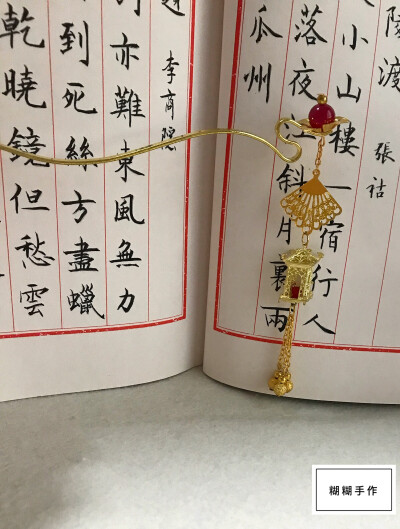 陵渡
張祜
小山樓一宿行人
落夜江斜月裏兩
瓜州
李商院
亦難東風無力
到死絲方盡蠟
乾曉鏡但愁雲
糊糊手作